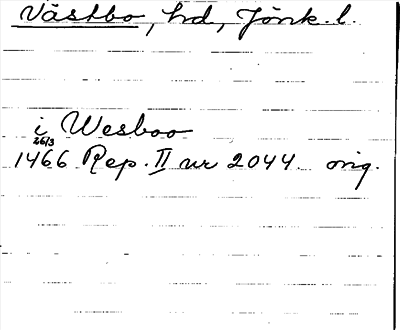 Västbo, hd, Jönk. l.
i Wesboo
26/3
1466 Rep. II nr 2044. orig.